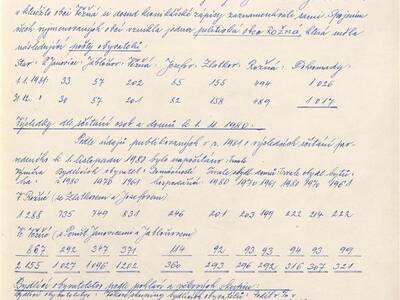 v kterýžto obci Rožná si dosud kronikářské zápisy zaznamenávala sama. Spojením
všech vyjmenovaných obcí vznikla jedna politická obec ROŽNÁ, která měla
následující počty obyvatelů:
Stav: D. Janovice Jabloňov Věžná Josefov Zlatkov Rožná Dohromady
1. 1. 1981: 33 57 202 55 155 494 1 026
31. 12. " 30 57 201 52 158 489 1 017
Výsledky dle sčítání osob a domů k 1. 11. 1980.
Podle údajů publikovaných v r. 1981 o výsledcích sčítání pro-
vedeného k 1. listopadu 1980 bylo napočítáno: Trvale
Výměra bydlících obyvatel: Domácností: Trvale obydl. domů: Trvale obydl. bytů:
ha. 1980 1970 1961 1980 1970 1961 1980 1970 1961
V Rožné (se Zlatkovem a Josefovem)
1 288 735 749 831 246 201 203 199 222 214 222
Ve Věžné (s Janovicemi a Jabloňovem)
867 292 347 371 114 92 93 93 94 93 99
2 155 1 027 1 096 1 202 360 293 296 292 316 307 321
Bydlící obyvatelstvo podle pohlaví a věkových skupin: